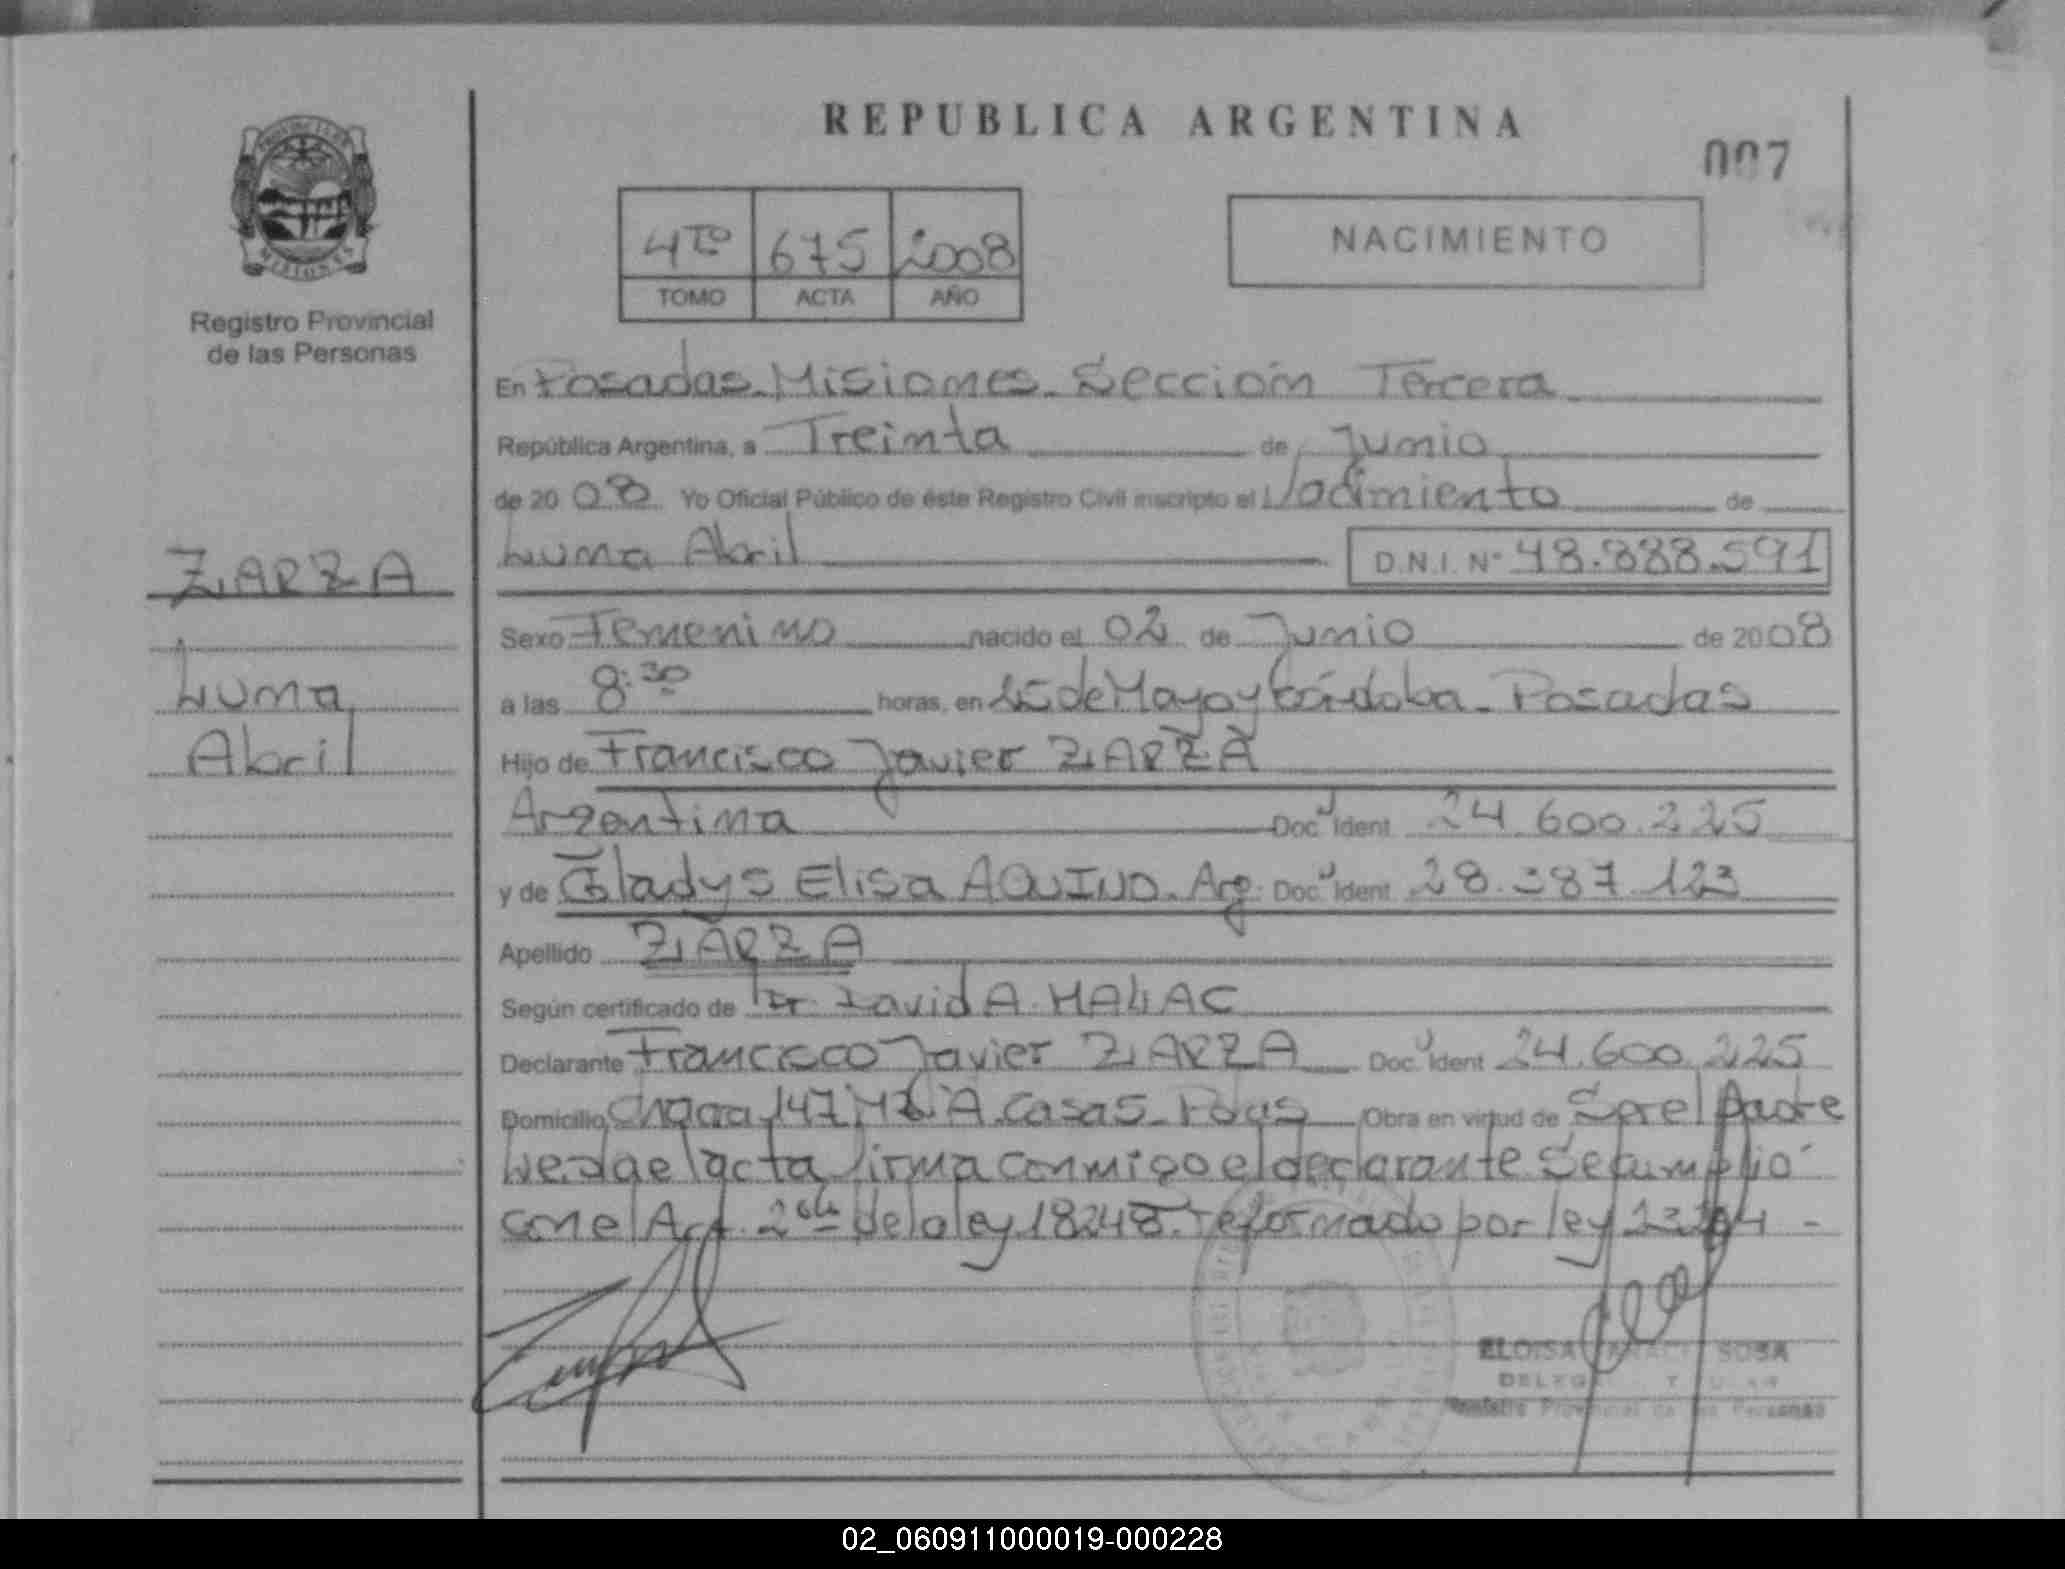 REPUBLICA ARGENTINA
007
PROVINCIA DE
MISIONES
Registro Provincial
de las Personas
4TO 675 2008
TOMO ACTA AÑO
NACIMIENTO
En Posadas - Misiones - Sección Tercera
República Argentina, a Treinta de Junio
de 20 08 Yo Oficial Público de éste Registro Civil inscripto el Nacimiento de
Luma Abril D.N.I. Nº 48.888.591
ZARZA
Luma
Abril
Sexo Femenino nacido el 02 de Junio de 2008
a las 8:30 horas, en 25 de Mayo y Córdoba - Posadas
Hijo de Francisco Javier ZARZA
Argentina Doc. Ident. 24.600.225
y de Gladys Elisa AQUINO. Arg. Doc. Ident. 28.387.123
Apellido ZARZA
Según certificado de Dr. David A.
Declarante Francisco Javier ZARZA Doc. Ident. 24.600.225
Domicilio Chacra 147 A Casa 5 - Pdas Obra en virtud de Ser el Padre
acta firma conmigo el declarante Se cumplió
con el Art. 2 de la ley 18248 reformado por ley
ELOISA SOSA
Registro Provincial de las Personas
02_060911000019-000228